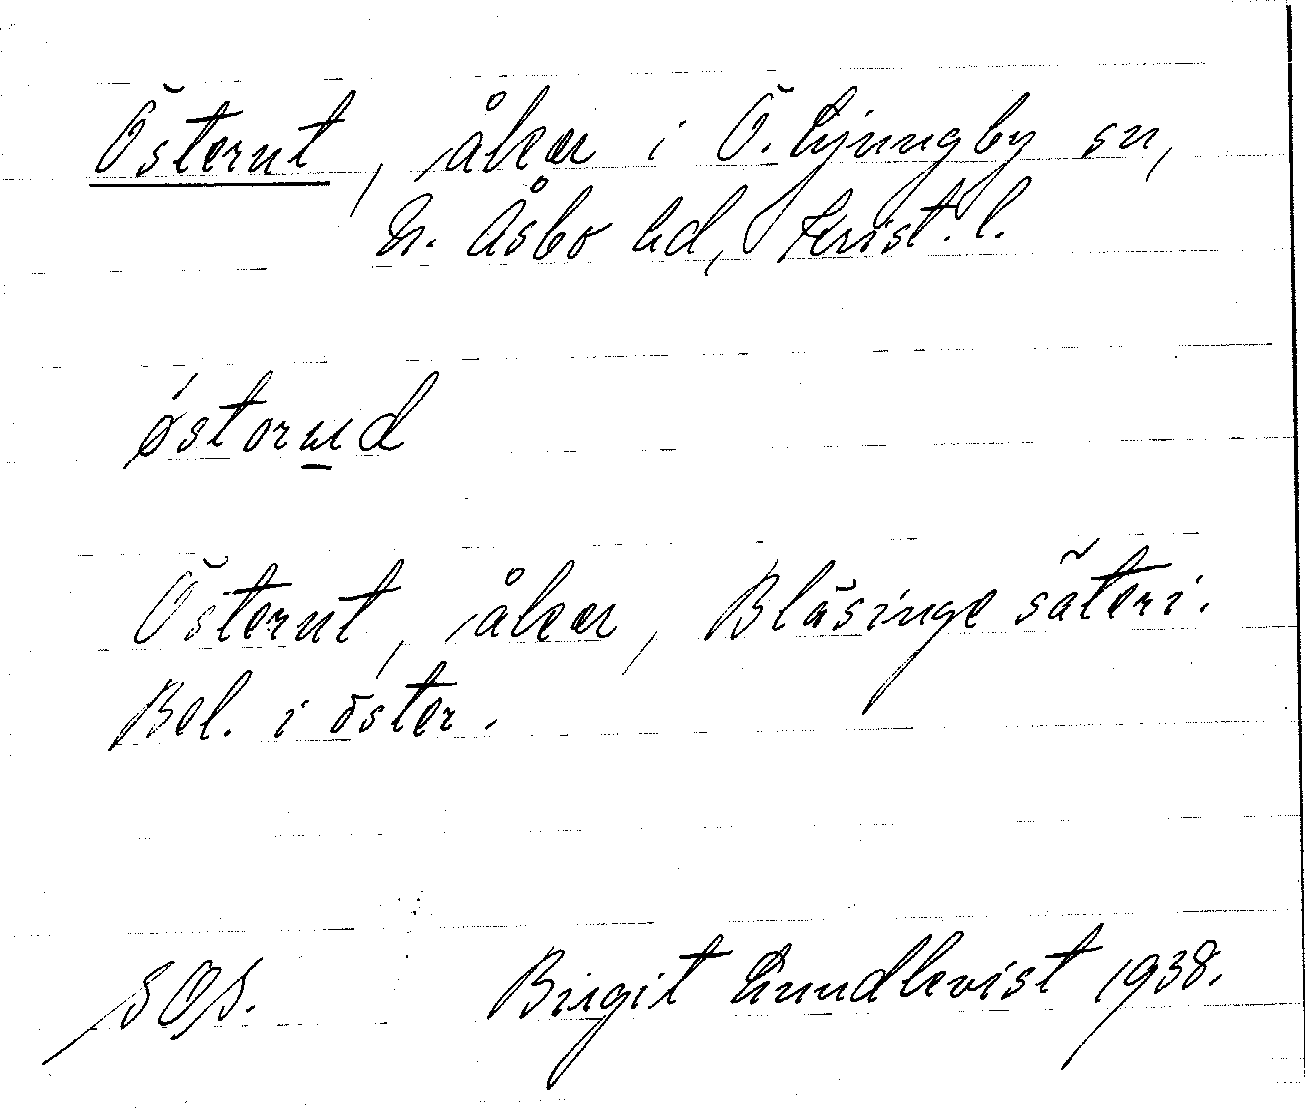 Östernt, åker i Ö. Ljungby sn,
N. Åsbo hd, Krist. l.
østorud
Östernt, åker, Blåsinge säteri.
Bel. i öster.
SOS. Birgit Lundkvist 1938.